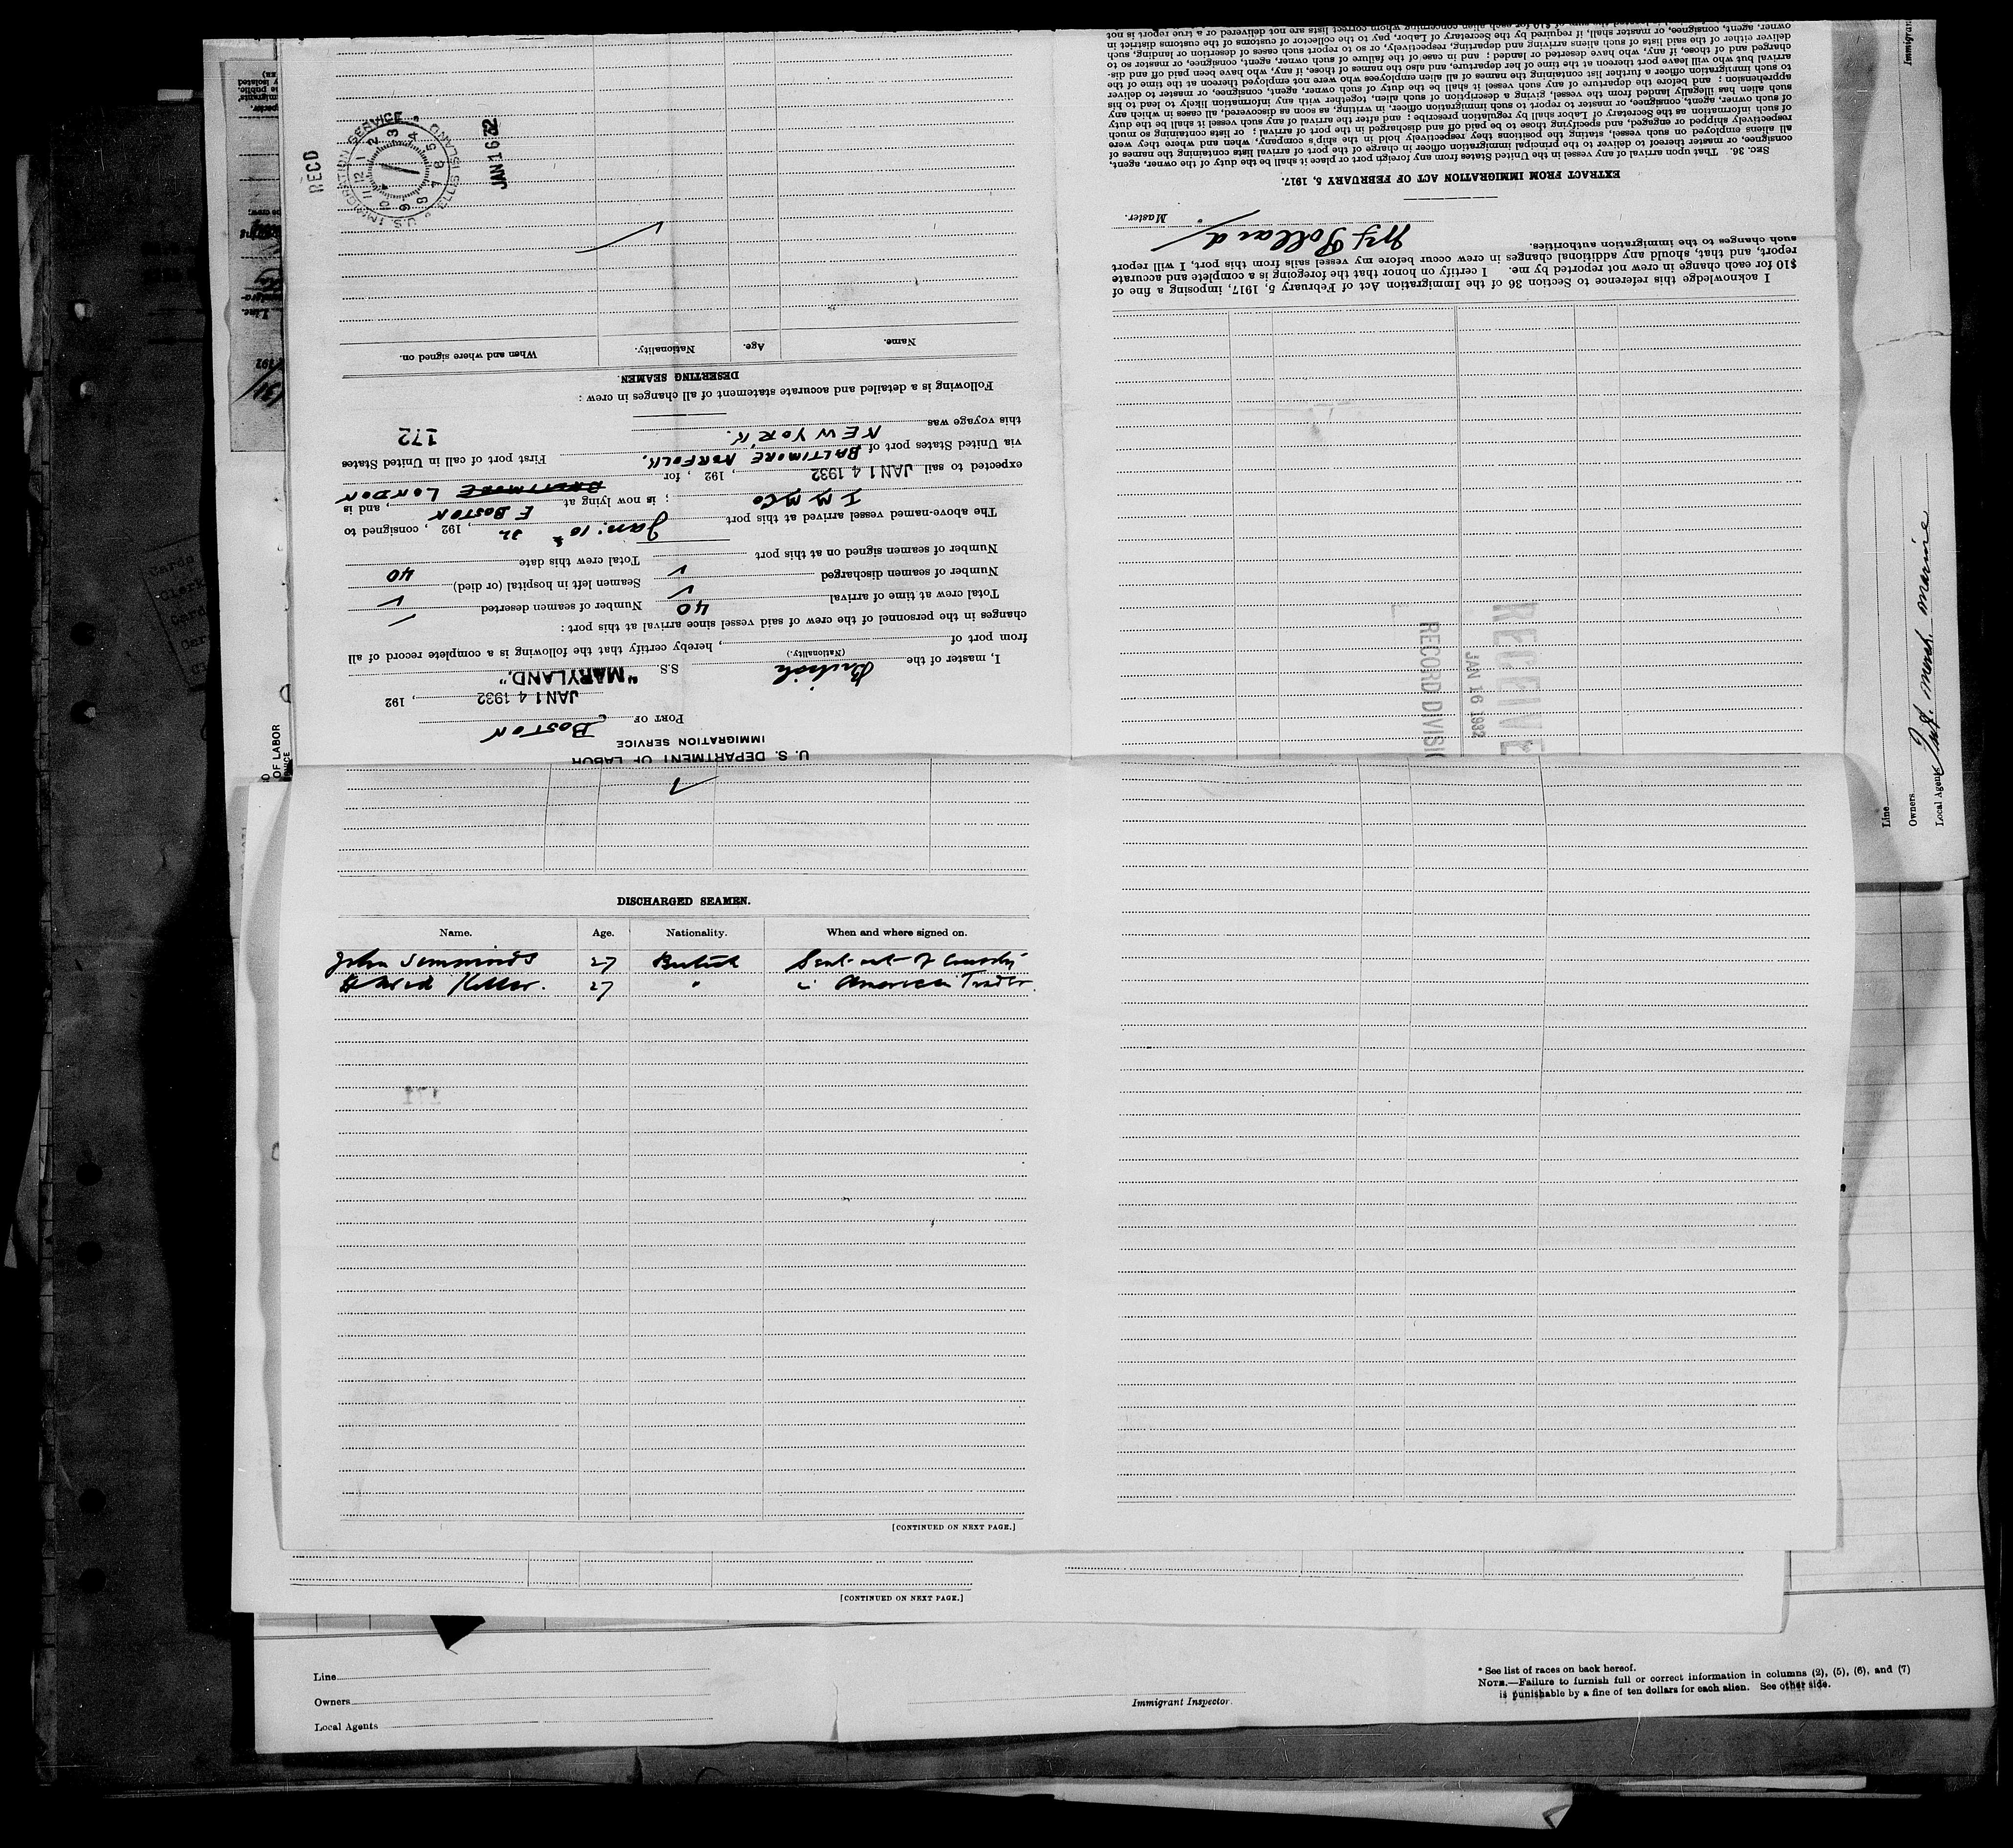 U. S. DEPARTMENT OF LABOR
IMMIGRATION SERVICE
PORT OF BOSTON
JAN 14 1932, 192
I, master of the British S.S. "MARYLAND,"
(Nationality.)
from port of , hereby certify that the following is a complete record of all
changes in the personnel of the crew of said vessel since arrival at this port:
Total crew at time of arrival 40 Number of seamen deserted
Number of seamen discharged Seamen left in hospital (or died)
Number of seamen signed on at this port Total crew this date 40
The above-named vessel arrived at this port Jan: 10th 32, 192 , consigned to
I M M Co ; is now lying at E BOSTON, and is
expected to sail JAN 14 1932, 192 , for BALTIMORE LONDON
via United States port of BALTIMORE NORFOLK. First port of call in United States
this voyage was NEW YORK. 172
Following is a detailed and accurate statement of all changes in crew:
DESERTING SEAMEN.
Name. Age. Nationality. When and where signed on.
RECD
U.S. IMMIGRATION SERVICE ELLIS ISLAND
JAN 16 32
I acknowledge this reference to Section 36 of the Immigration Act of February 5, 1917, imposing a fine of
$10 for each change in crew not reported by me. I certify on honor that the foregoing is a complete and accurate
report, and that, should any additional changes in crew occur before my vessel sails from this port, I will report
such changes to the immigration authorities.
Pollard
Master.
EXTRACT FROM IMMIGRATION ACT OF FEBRUARY 5, 1917.
SEC. 36. That upon arrival of any vessel in the United States from any foreign port or place it shall be the duty of the owner, agent,
consignee, or master thereof to deliver to the principal immigration officer in charge of the port of arrival lists containing the names of
all aliens employed on such vessel, stating the positions they respectively hold in the ship's company, when and where they were
respectively shipped or engaged, and specifying those to be paid off and discharged in the port of arrival; or lists containing so much
of such information as the Secretary of Labor shall by regulation prescribe; and after the arrival of any such vessel it shall be the duty
of such owner, agent, consignee, or master to report to such immigration officer, in writing, as soon as discovered, all cases in which any
such alien has illegally landed from the vessel, giving a description of such alien, together with any information likely to lead to his
apprehension; and before the departure of any such vessel it shall be the duty of such owner, agent, consignee, or master to deliver
to such immigration officer a further list containing the names of all alien employees who were not employed thereon at the time of the
arrival but who will leave port thereon at the time of her departure, and also the names of those, if any, who have been paid off and dis-
charged and of those, if any, who have deserted or landed; and in case of the failure of such owner, agent, consignee, or master so to
deliver either of the said lists of such aliens arriving and departing, respectively, or so to report such cases of desertion or landing, such
owner, agent, consignee, or master shall, if required by the Secretary of Labor, pay to the collector of customs of the customs district in
RECEIVE
JAN 16 1932
RECORD DIVISI
DISCHARGED SEAMEN.
Name. Age. Nationality. When and where signed on.
John Simmonds 27 British Sent out of Country
27 " American Trader.
[CONTINUED ON NEXT PAGE.]
[CONTINUED ON NEXT PAGE.]
Line
Owners
Local Agents
Immigrant Inspector.
* See list of races on back hereof.
NOTE.—Failure to furnish full or correct information in columns (2), (5), (6), and (7)
is punishable by a fine of ten dollars for each alien. See other side.
Line
Owners
Local Agents Int. merch. marine
OF LABOR